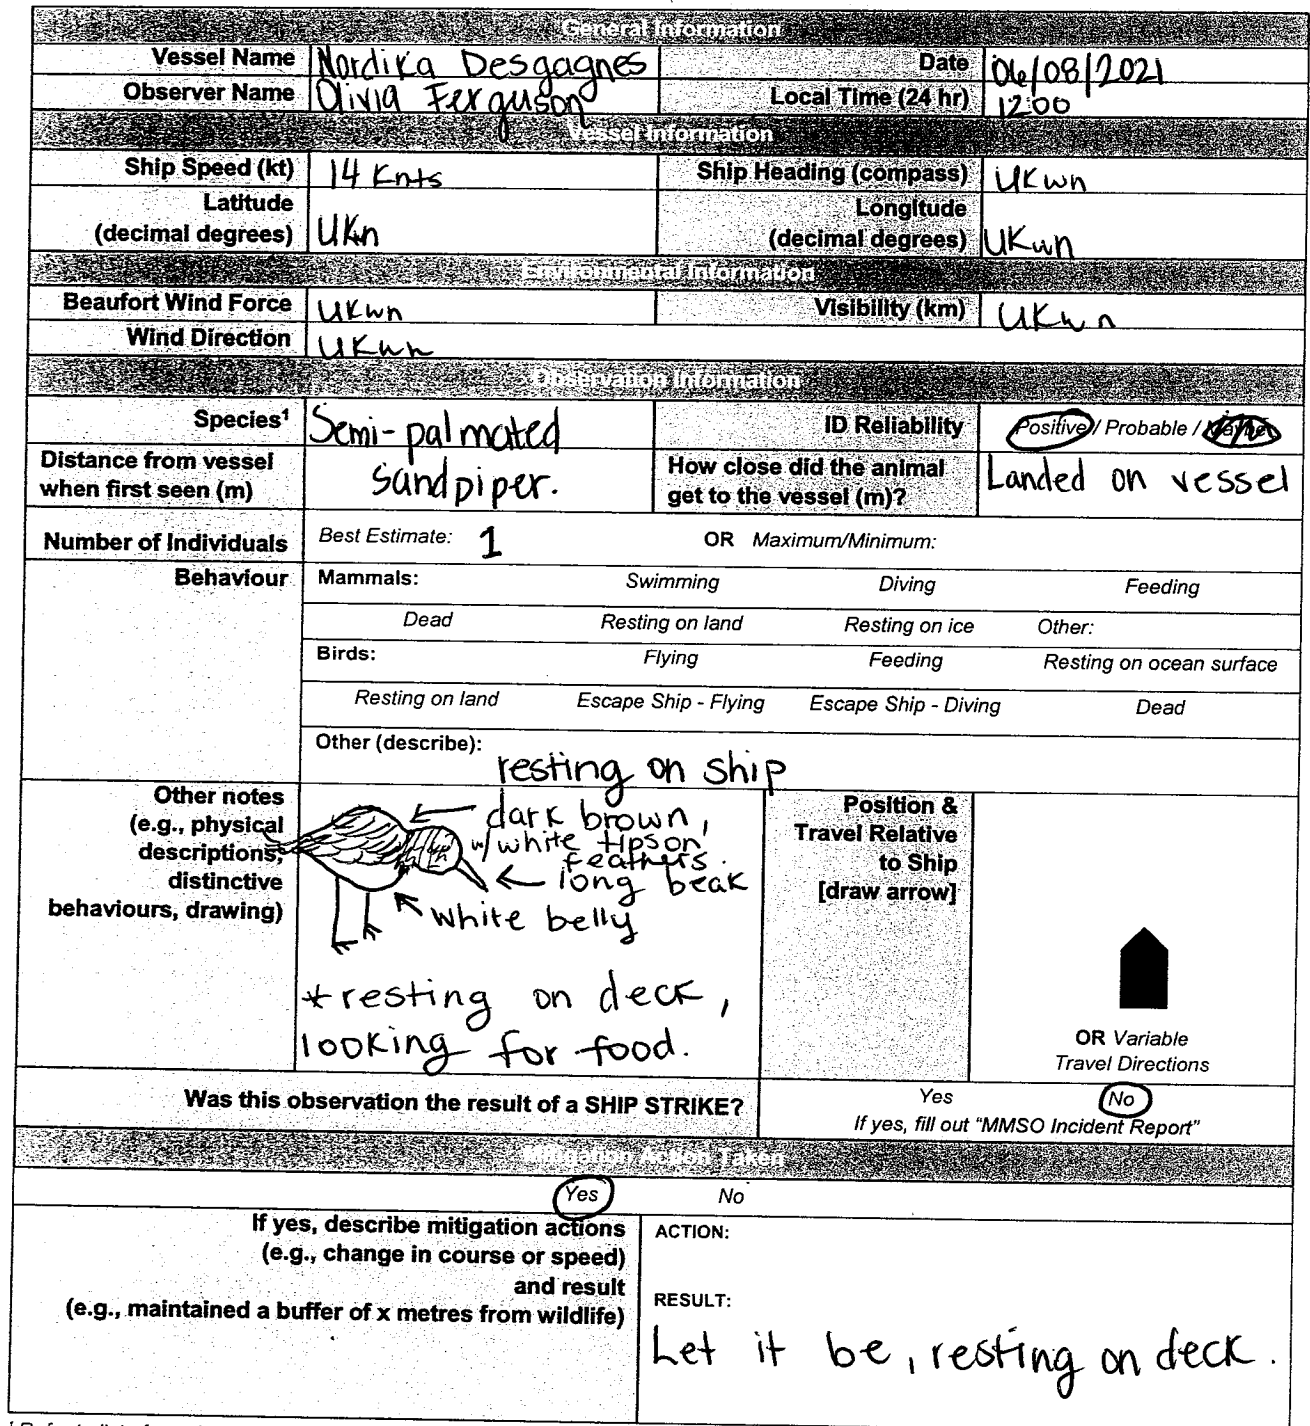 General Information
Vessel Name Nordika Desgagnes Date 06/08/2021
Observer Name Olivia Ferguson Local Time (24 hr) 1200
Vessel Information
Ship Speed (kt) 14 Knts Ship Heading (compass) UKwn
Latitude
(decimal degrees) UKn Longitude
(decimal degrees) UKwn
Environmental Information
Beaufort Wind Force UKwn Visibility (km) UKwn
Wind Direction UKwn
Observation Information
Species¹ Semi-palmated ID Reliability Positive / Probable /
Distance from vessel
when first seen (m) sandpiper. How close did the animal
get to the vessel (m)? Landed on vessel
Number of Individuals Best Estimate: 1 OR Maximum/Minimum:
Behaviour Mammals: Swimming Diving Feeding
Dead Resting on land Resting on ice Other:
Birds: Flying Feeding Resting on ocean surface
Resting on land Escape Ship - Flying Escape Ship - Diving Dead
Other (describe): resting on ship
Other notes
(e.g., physical
descriptions,
distinctive
behaviours, drawing)
dark brown,
w/white tips on
feathers.
long beak
white belly
*resting on deck,
looking for food.
Position &
Travel Relative
to Ship
[draw arrow]
OR Variable
Travel Directions
Was this observation the result of a SHIP STRIKE? Yes No
If yes, fill out "MMSO Incident Report"
Mitigation Action Taken
Yes No
If yes, describe mitigation actions
(e.g., change in course or speed)
and result
(e.g., maintained a buffer of x metres from wildlife)
ACTION:
RESULT:
Let it be, resting on deck.